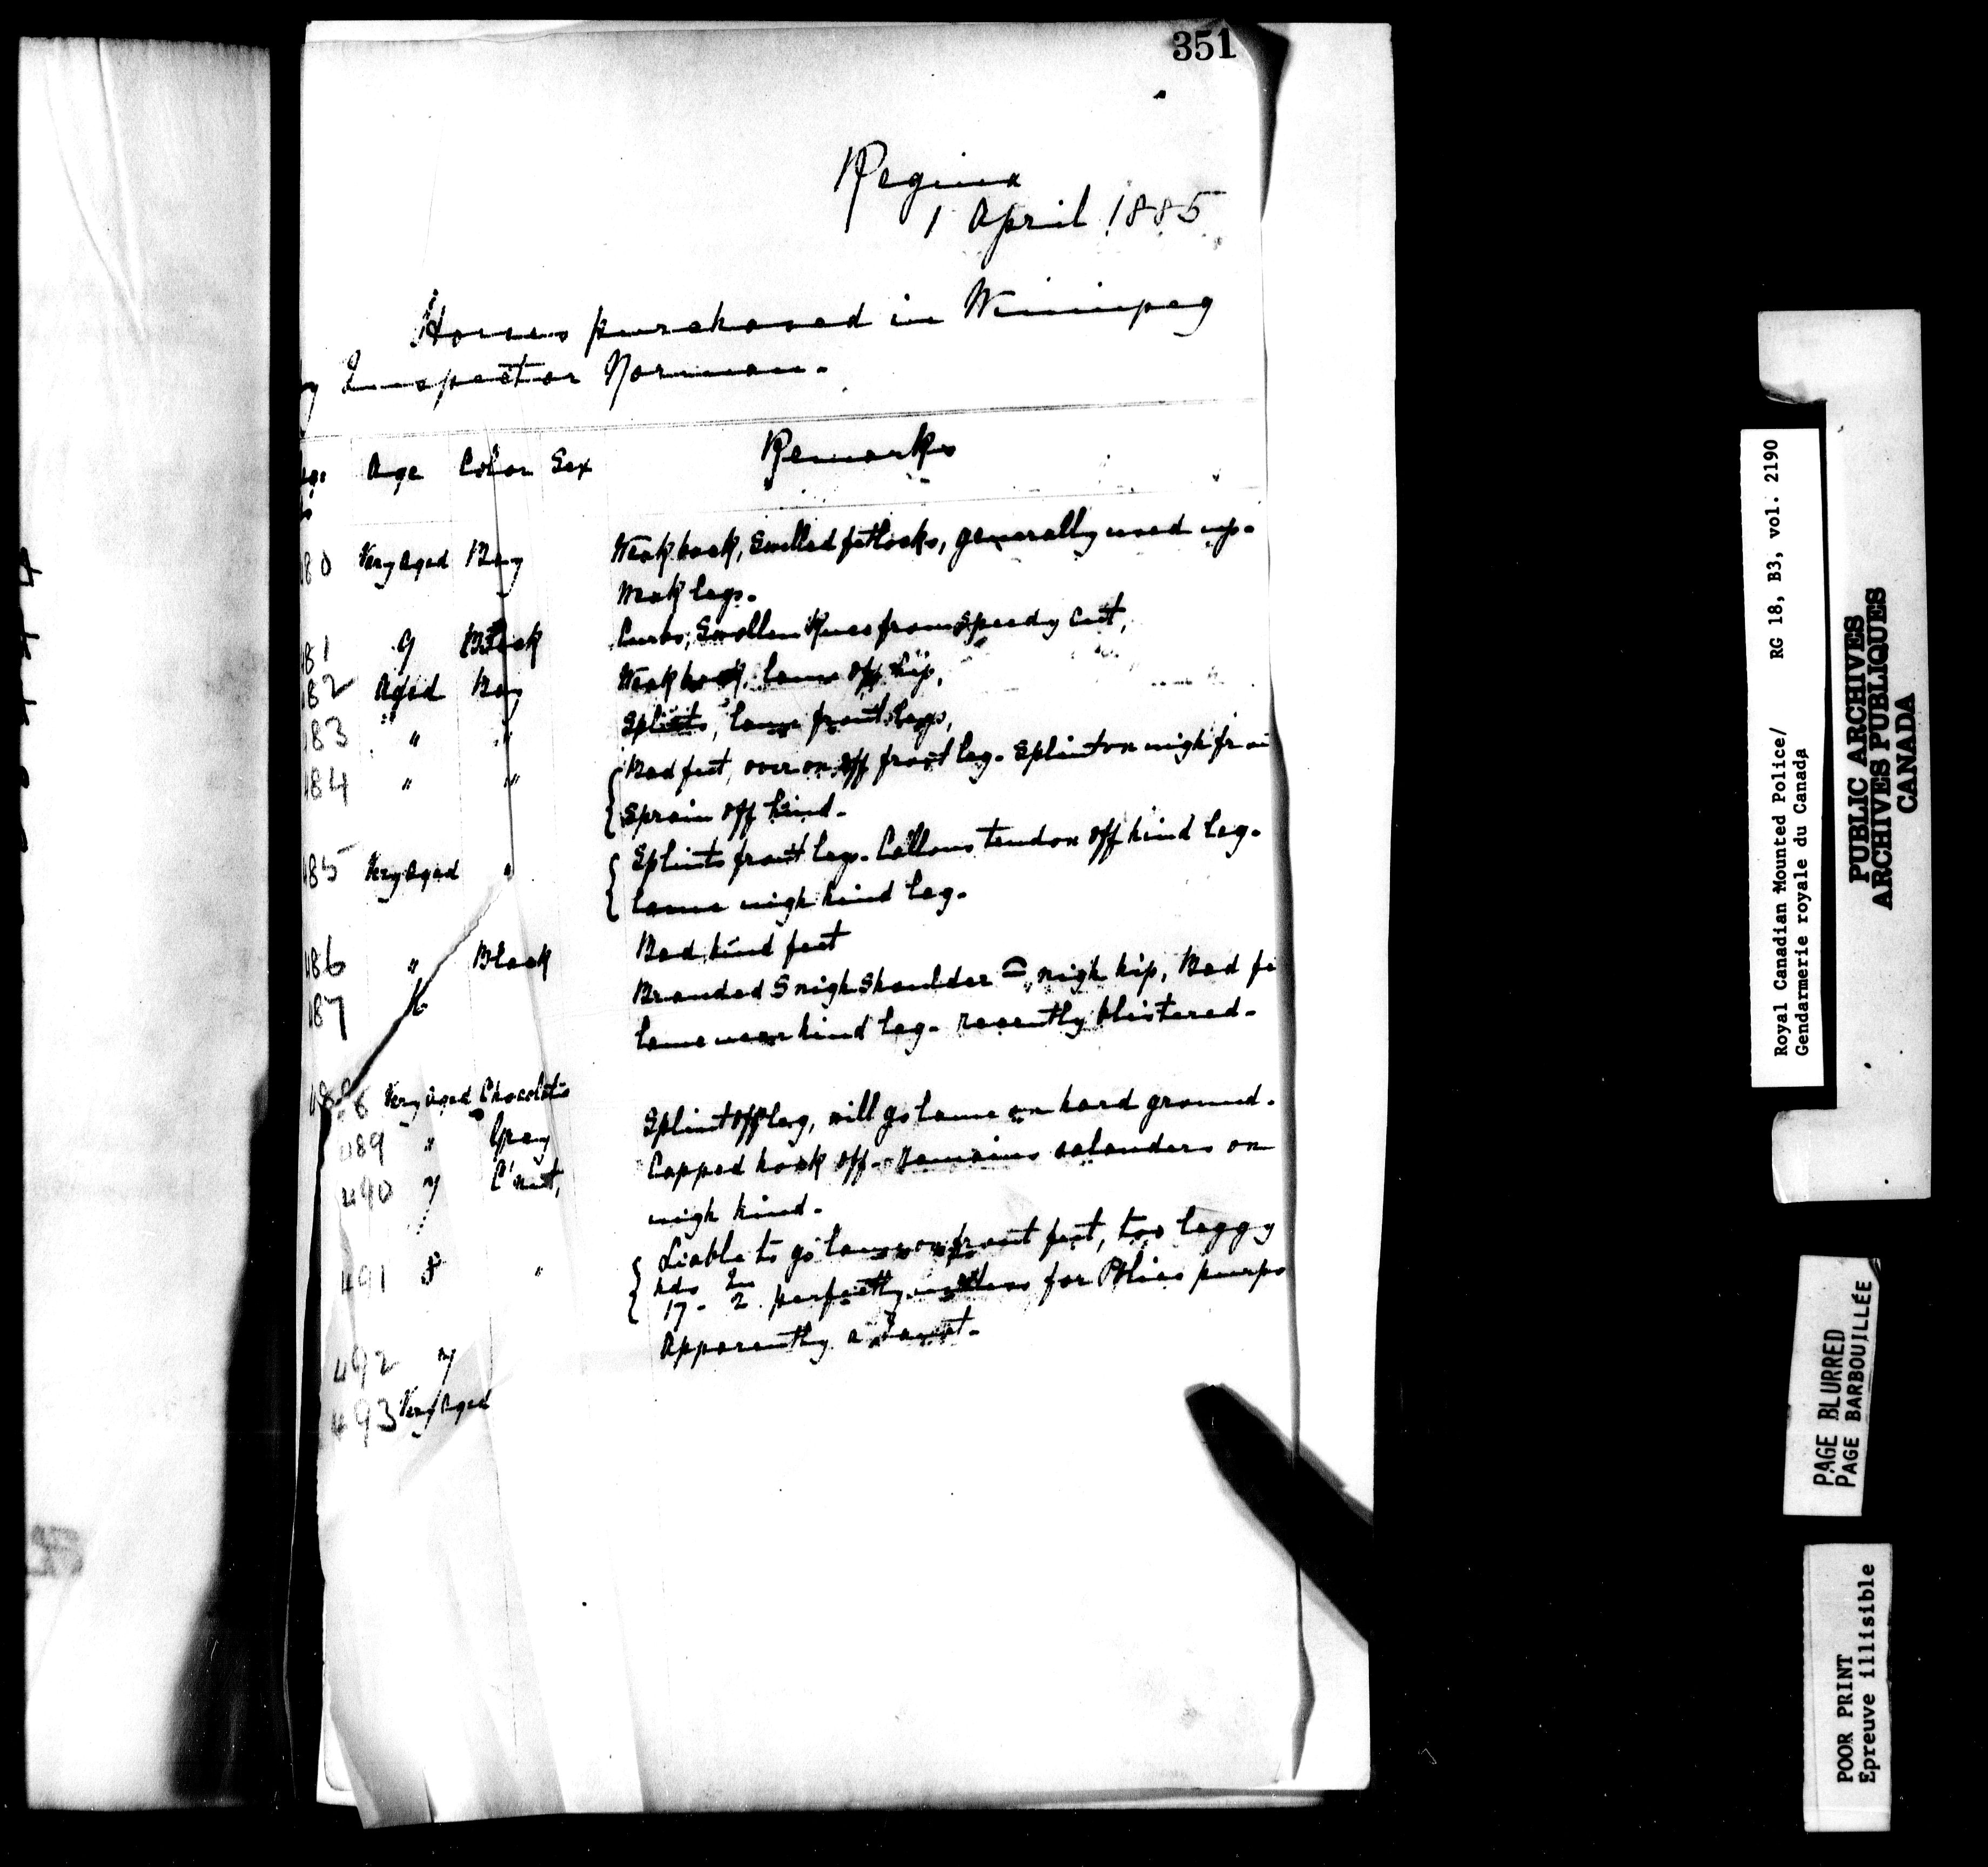 351
Regina
1 April 1885
Horses purchased in Winnipeg
by Inspector Norman.
Age Color Sex Remarks
480 Very Aged Bay Weak back, Swelled fetlocks, generally used up.
Weak legs.
481 9 Black Curbs, Swollen Knees from Speedy Cut,
482 Aged Bay Weak back, lame off hip,
483 " " Splints, lame front legs,
484 " " Bad feet, over on off front leg. Splint on nigh
Sprain off hind.
485 Very Aged " Splints front legs. Callous tendon off hind leg.
lame nigh hind leg.
486 " Black Bad hind feet
487 Branded S nigh Shoulder nigh hip, Bad
lame near hind leg. recently blistered.
488 Very Aged Chocolate
489 " Grey Splint off leg, will go lame on hard ground.
490 7 C'nut, Capped hock off. salanders on
nigh hind.
491 8 " Liable to go lame on front feet, too leggy
hds In
17 - 2 perfectly useless for Police
492 7 Apparently a
493 Very Aged
Royal Canadian Mounted Police/ RG 18, B3, vol. 2190
Gendarmerie royale du Canada
PUBLIC ARCHIVES
ARCHIVES PUBLIQUES
CANADA
PAGE BLURRED
PAGE BARBOUILLÉE
POOR PRINT
Epreuve illisible